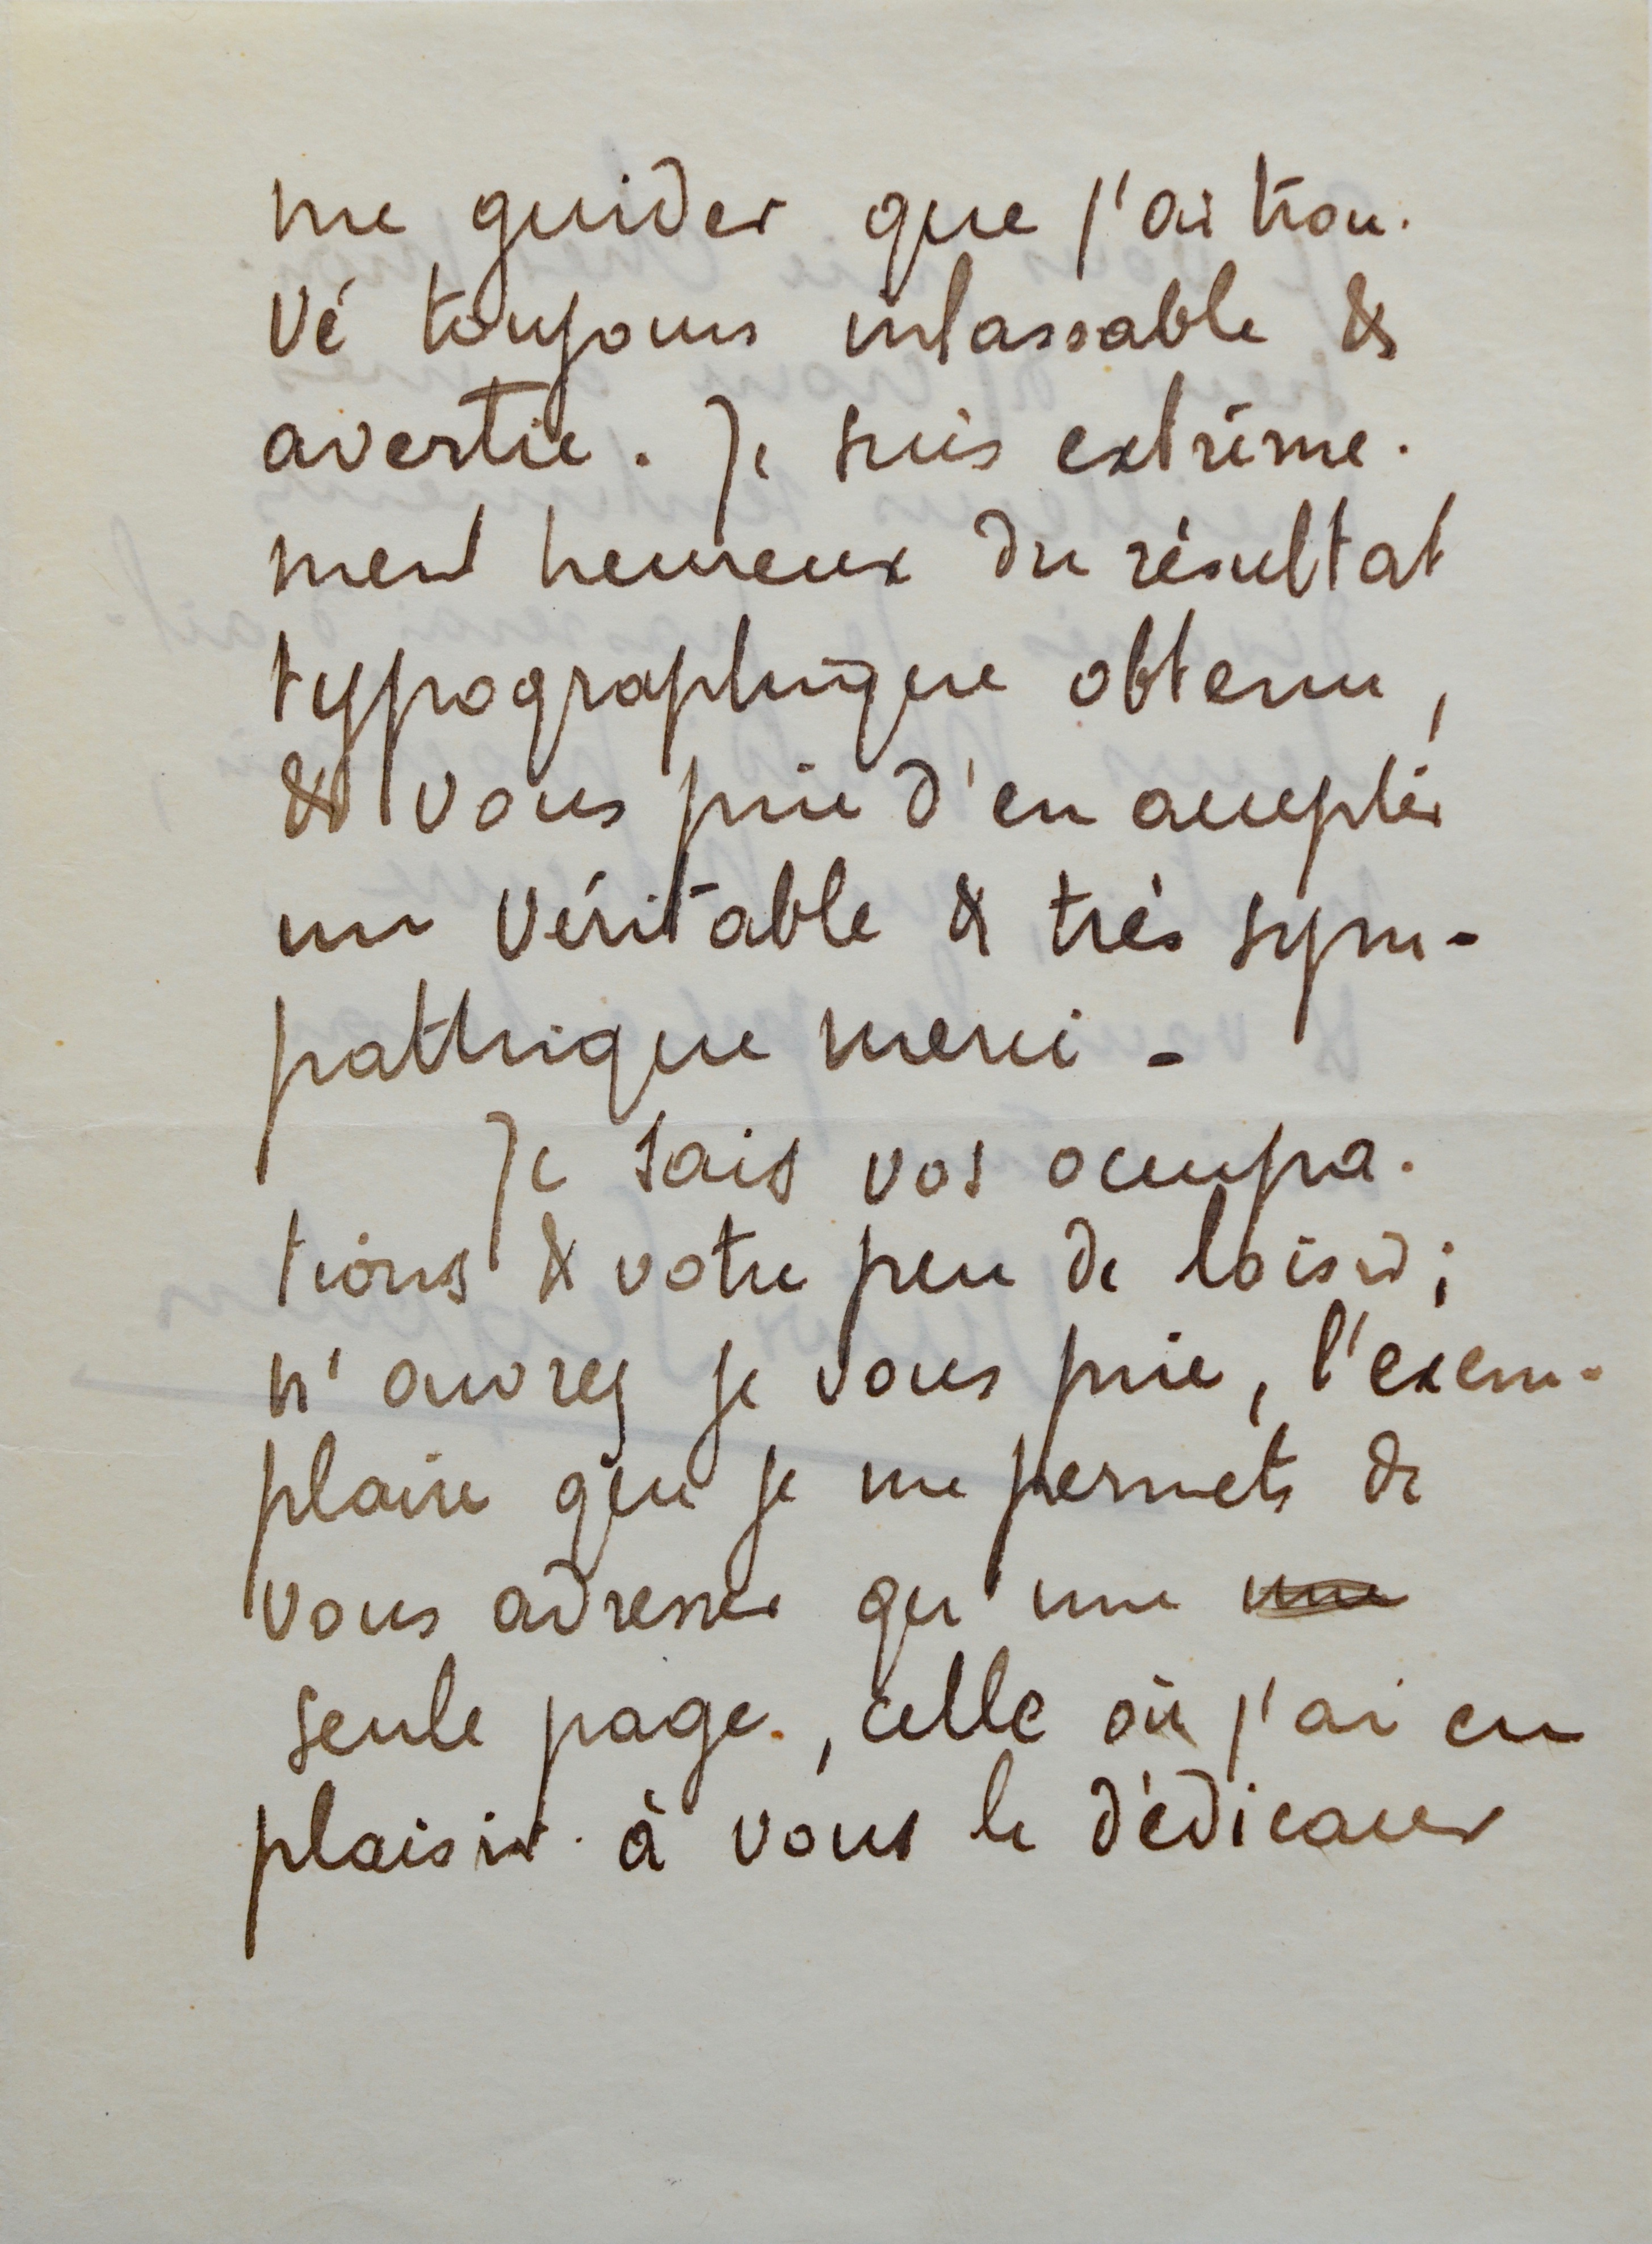 me guider que j'ai trou-
vé toujours inlassable &
avertie. Je suis extrême-
ment heureux du résultat
typographique obtenu,
& vous prie d'en accepter
un véritable & très sym-
pathique merci -
Je sais vos occupa-
tions & votre peu de loisir;
n'ouvrez je vous prie, l'exem-
plaire que je me permets de
vous adresser qu'une une
seule page, celle où j'ai eu
plaisir à vous le dédicacer